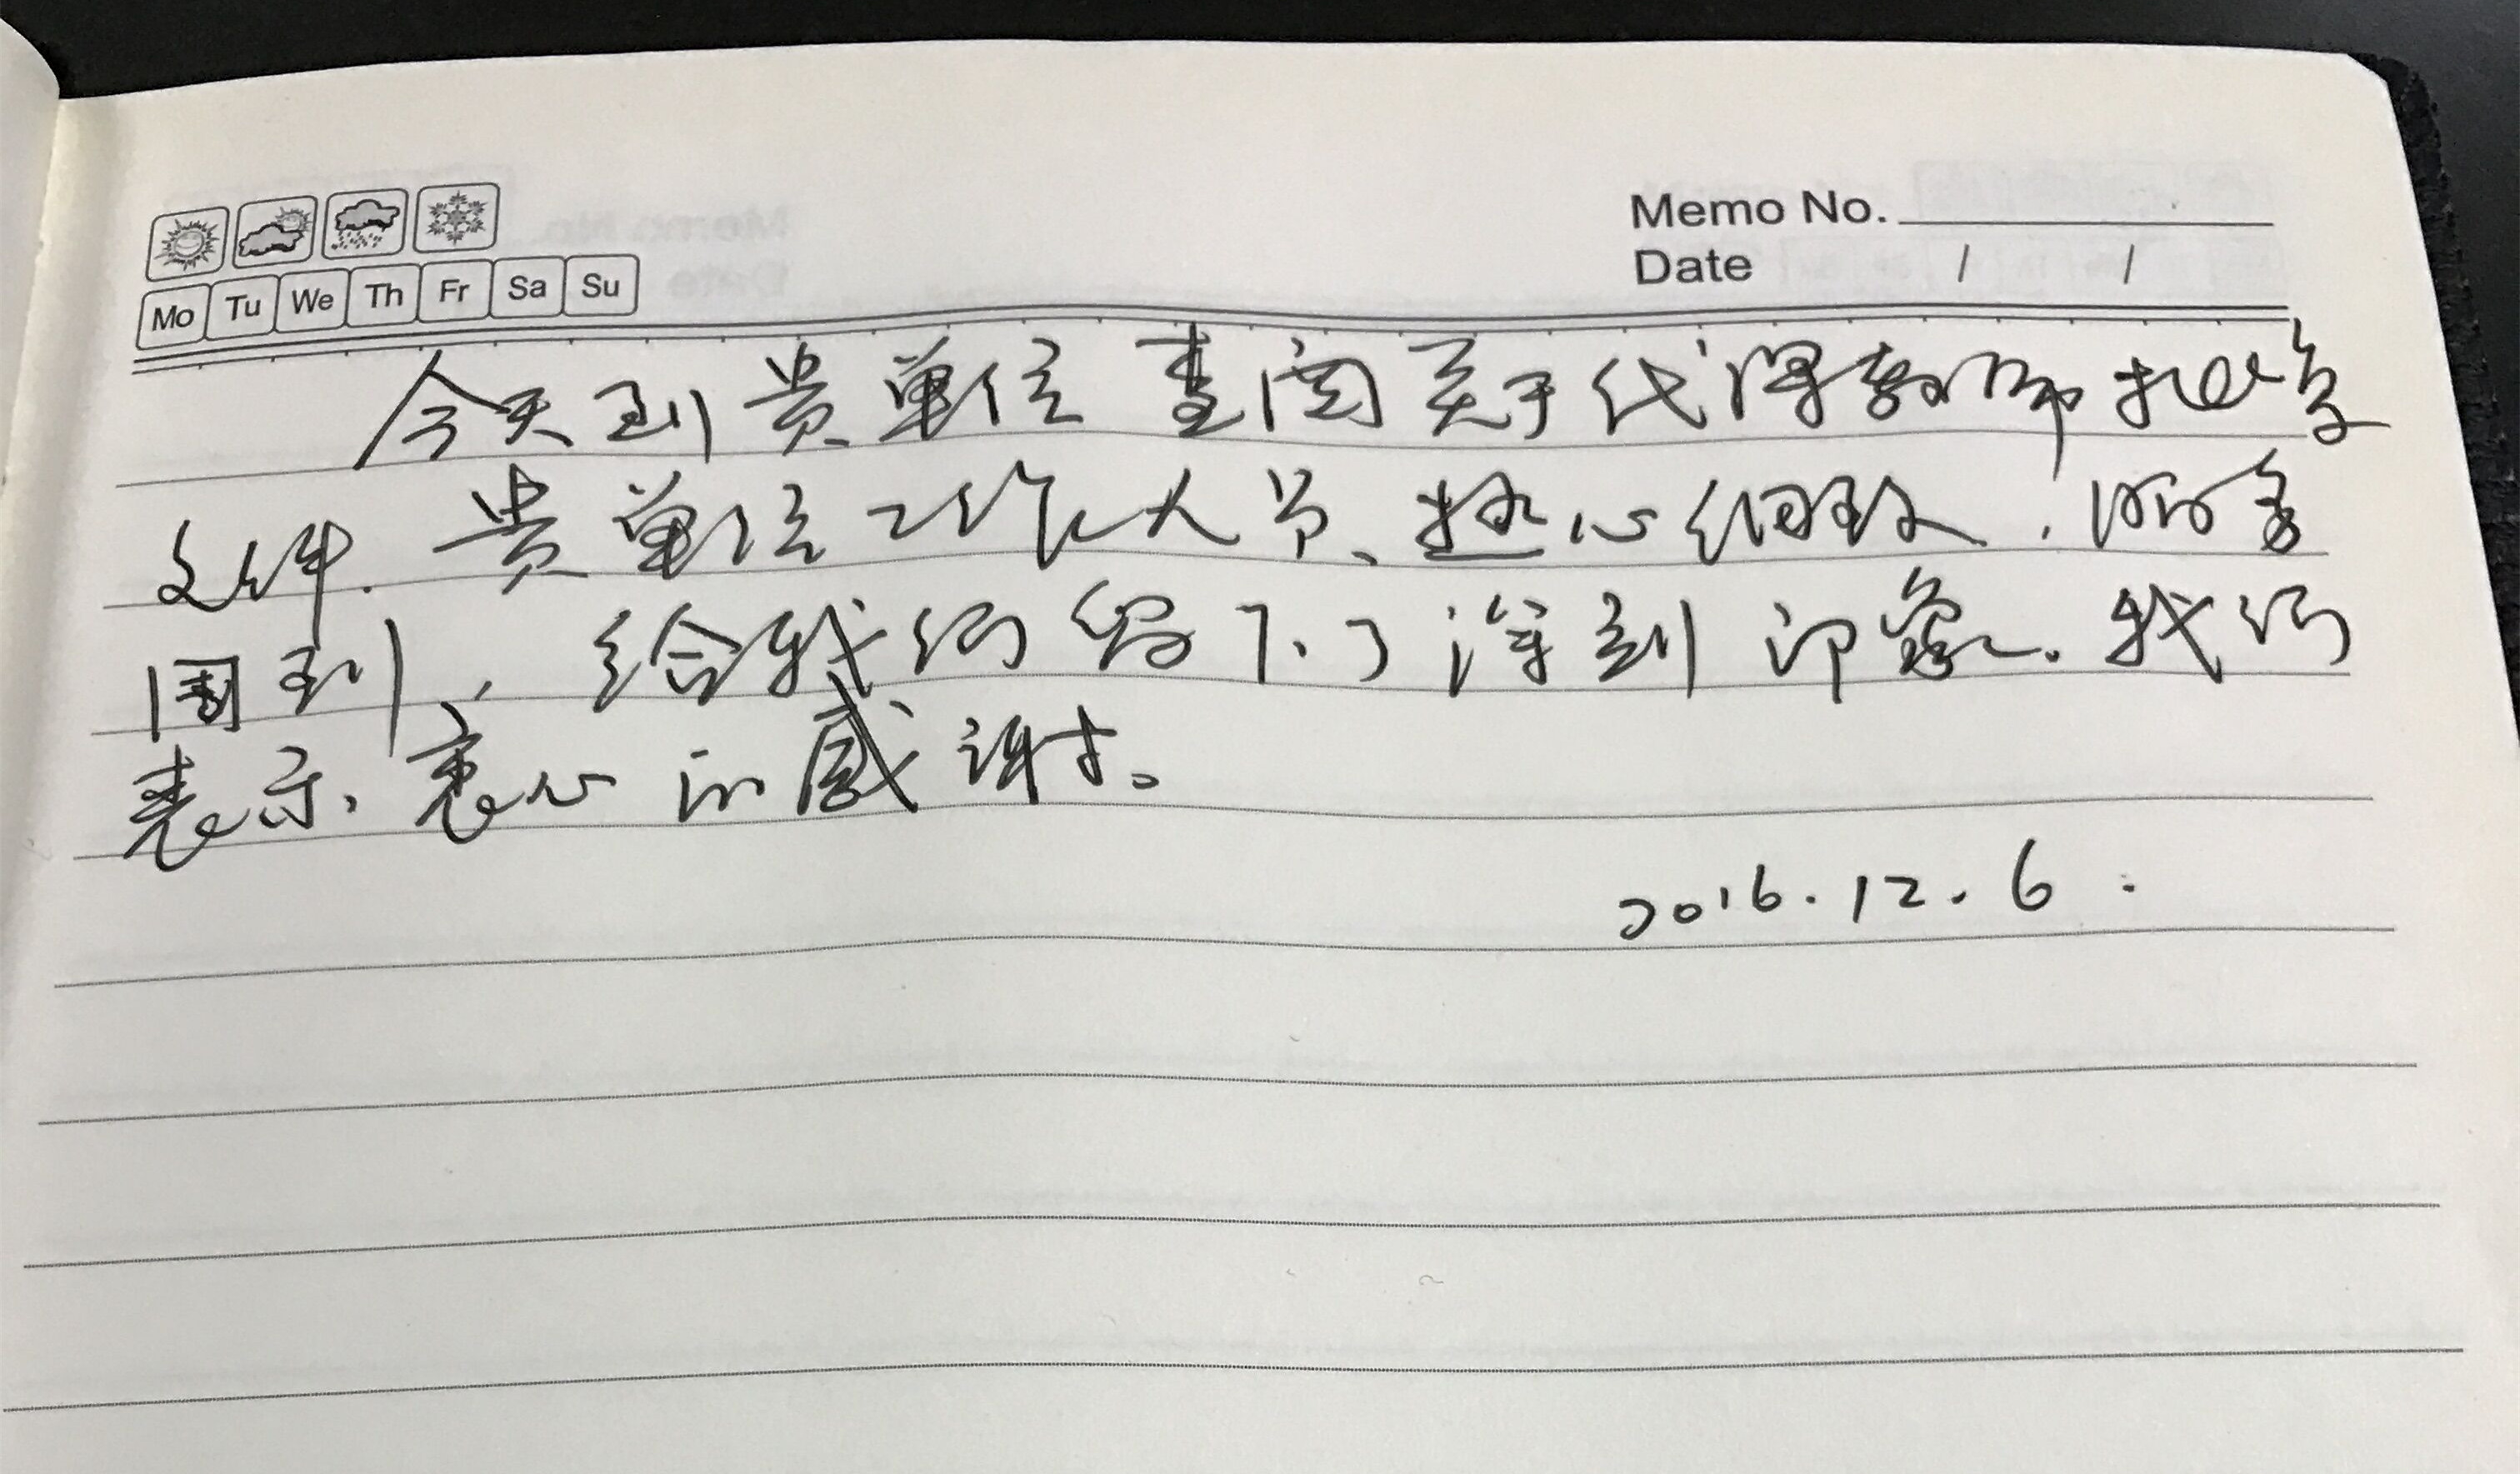 Memo No.
Date / /
Mo Tu We Th Fr Sa Su
今天到贵单位查阅关于代课教师
文件.贵单位工作人员、热心细致,服务
周到,给我们留下了深刻印象.我们
表示衷心的感谢。
2016.12.6.